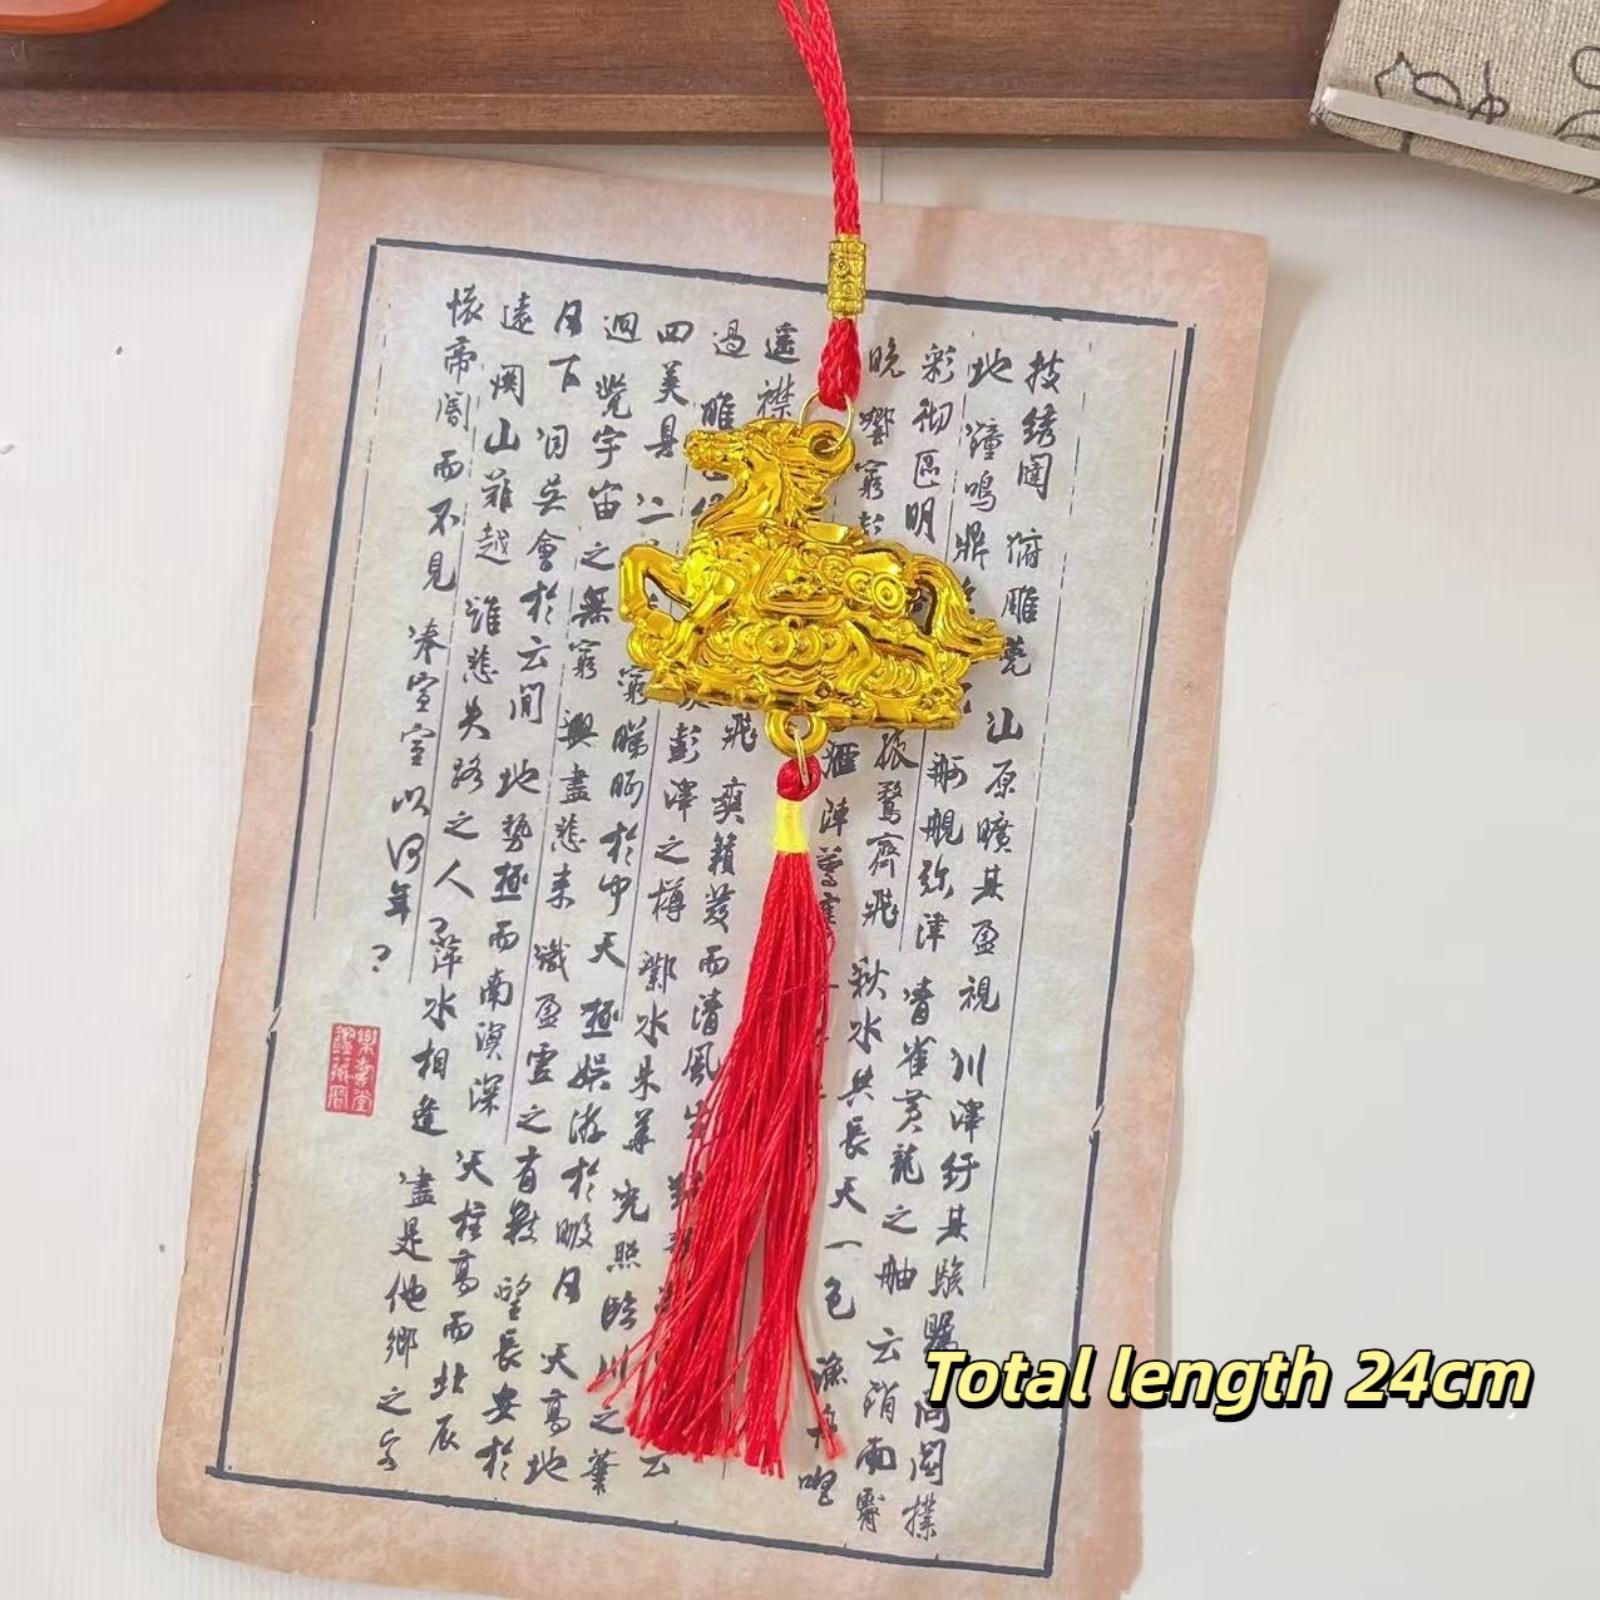 披綉闥 俯雕甍 山原曠其盈視 川澤紆其駭矚 閭閻撲
地 鐘鳴鼎 舸艦弥津 青雀黄龍之舳 云消雨霽
彩彻區明 鶩齊飛 秋水共長天一色 漁舟唱
晚 響窮彭 雁陣驚寒
遥襟 飛 爽籟發而清風生
過 睢 彭澤之樽 鄴水朱華 光照臨川之筆
四美具 二 窮睇眄於中天 極娱游於暇日 天高地
迥 覺宇宙之無窮 興盡悲来 識盈虚之有數 望長安於
日下 目吴會於云間 地勢極而南溟深 天柱高而北辰
遠 關山難越 誰悲失路之人 萍水相逢 盡是他鄉之客
懷帝閽而不見 奉宣室以何年?
Total length 24cm